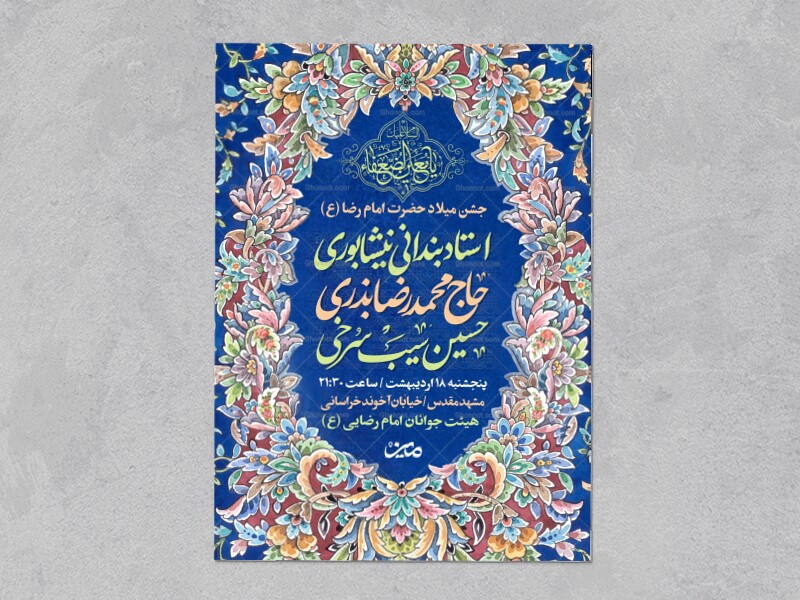 یا معین الضعفاء
جشن میلاد حضرت امام رضا (ع)
استاد بندانی نیشابوری
حاج محمدرضا بذری
حسین سیب سرخی
پنجشنبه ۱۸ اردیبهشت / ساعت ۲۱:۳۰
مشهد مقدس / خیابان آخوند خراسانی
هیئت جوانان امام رضایی (ع)